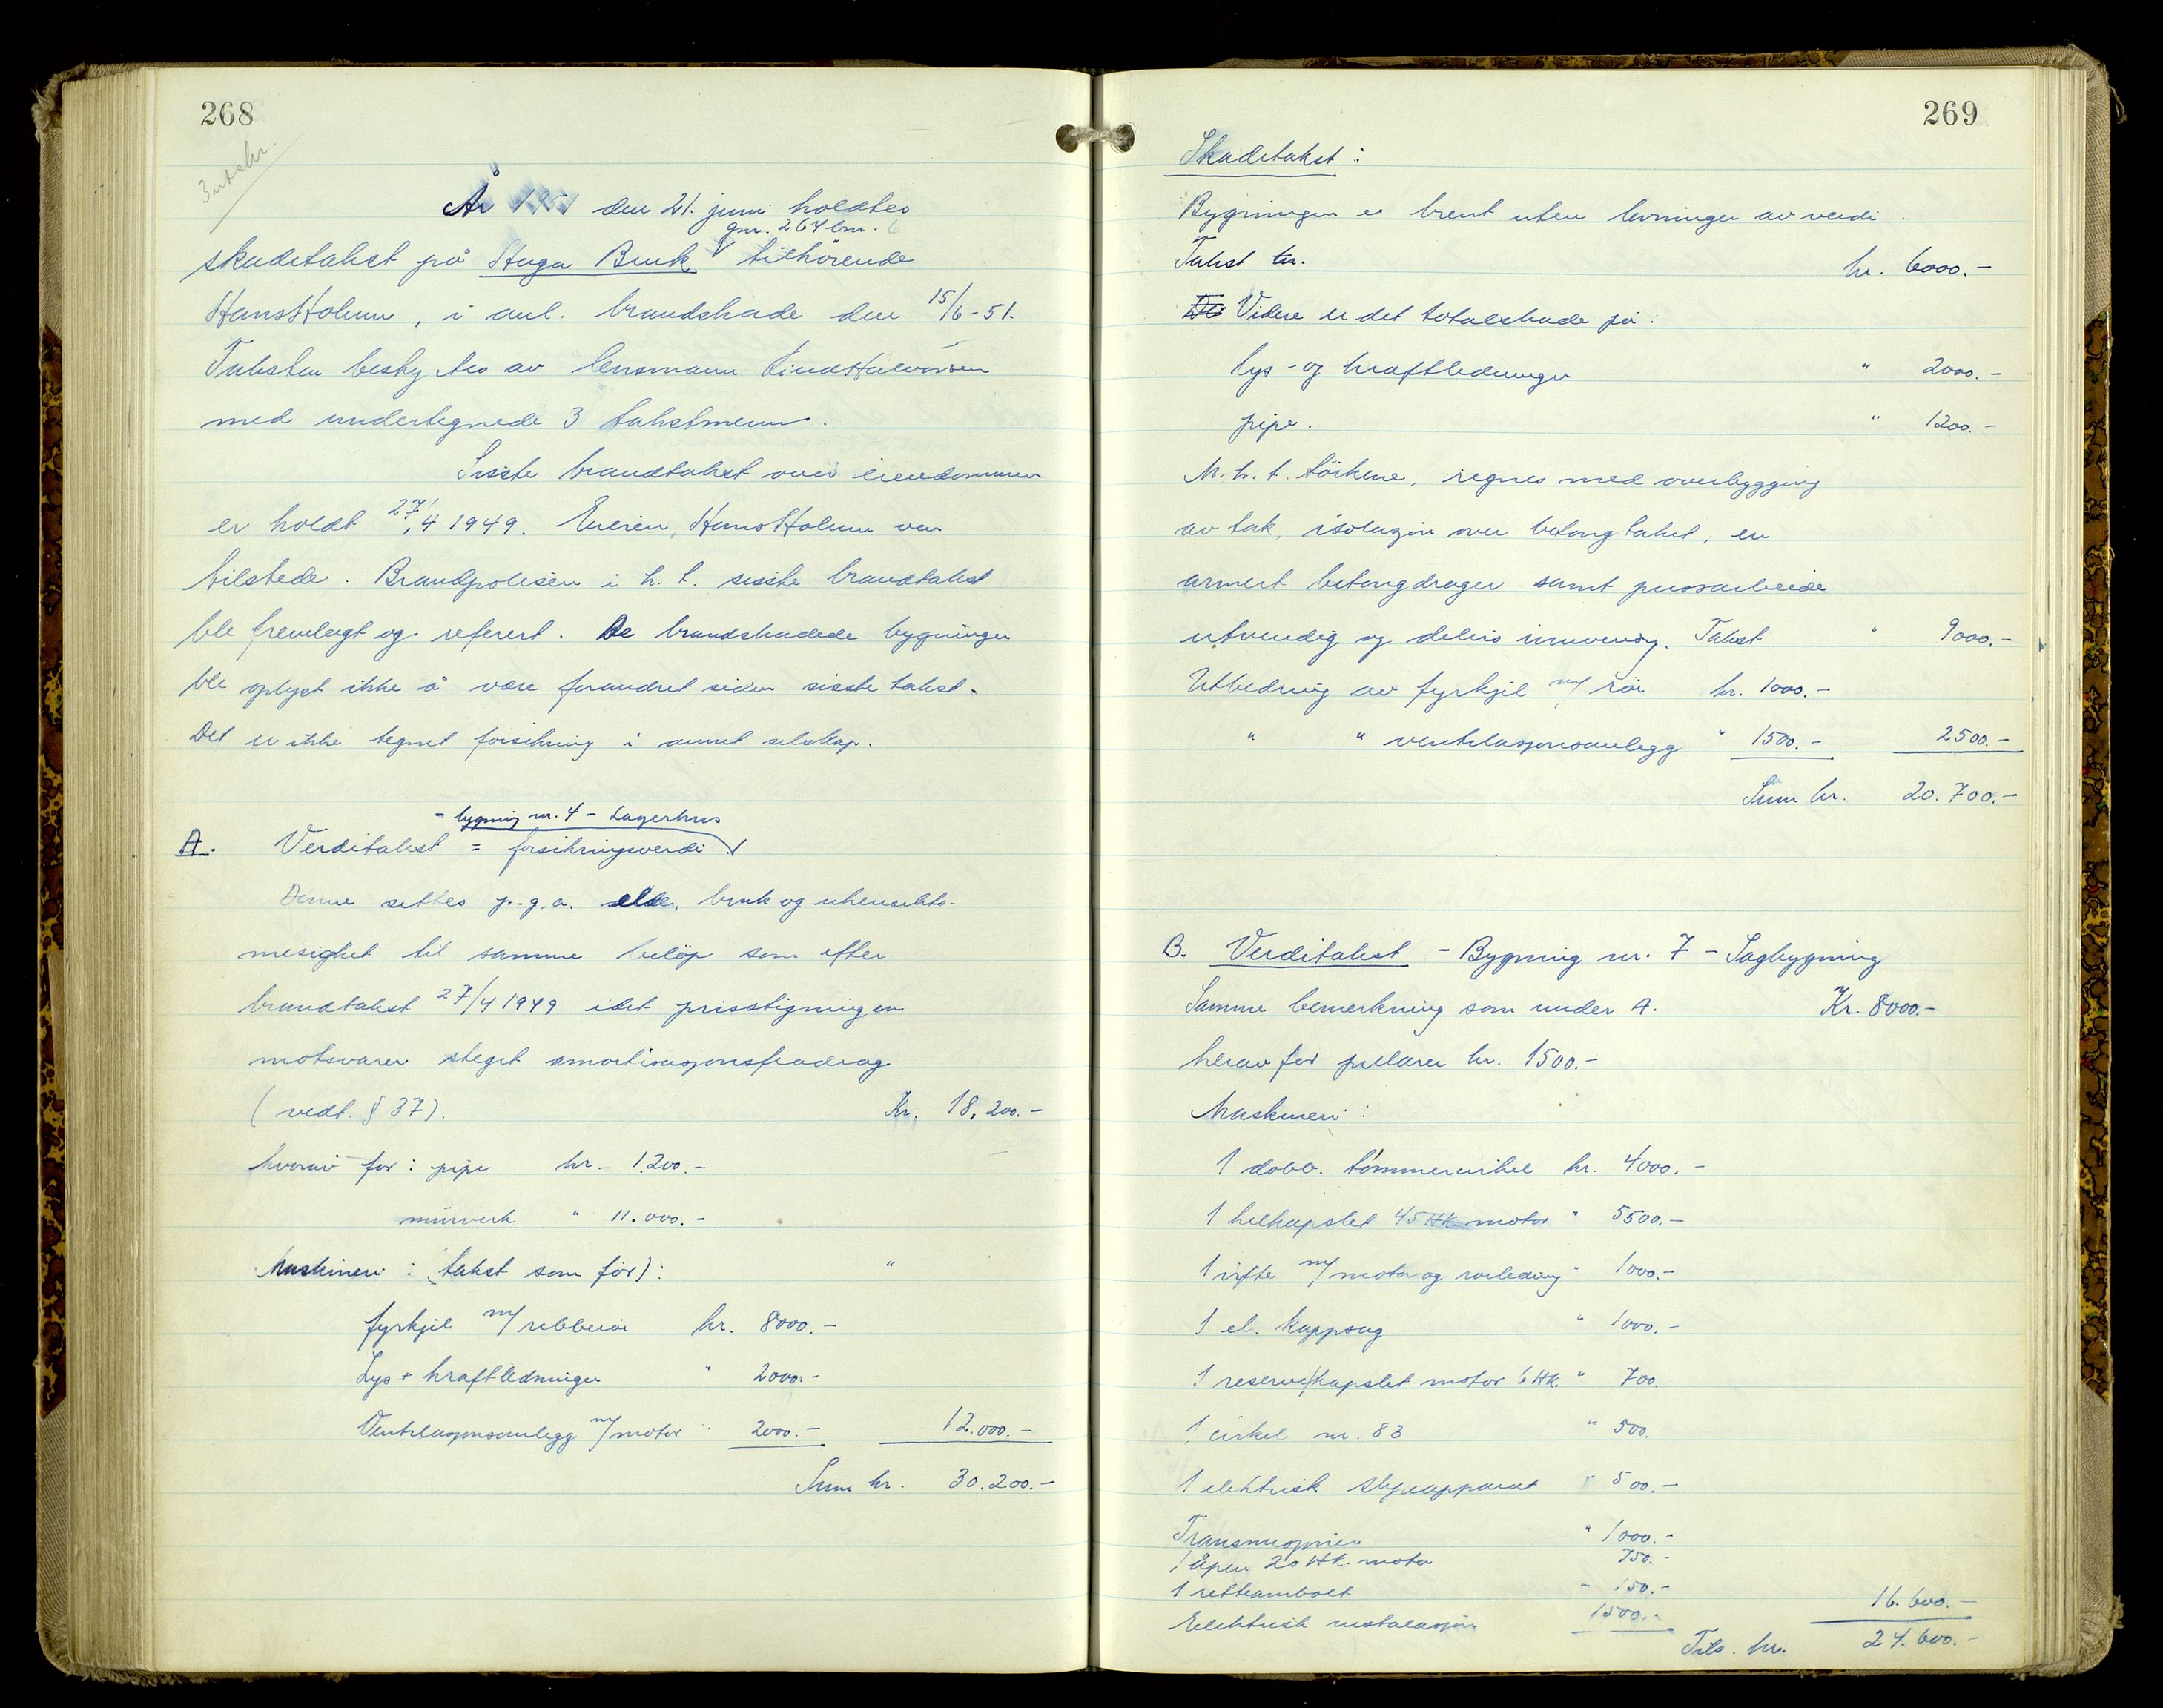 268
3 utskr.
År 1951 den 21. juni holdtes
gnr. 264 bnr. 6
skadetakst på Haga Bruk tilhørende
Hans Holum, i anl. brandskade den 15/6-51.
Taksten bestyrtes av lensmann
med undertegnede 3 takstmenn.
Sisste brandtakst over eiendommen
er holdt 27/4 1949. Eieren, Hans Holum var
tilstede. Brandpolisen i h. t. sisste brandtakst
ble fremlagt og referert. De brandskadede bygninger
ble oplyst ikke å være forandret siden sisste takst.
Det er ikke tegnet forsikring i annet selskap.
- bygning nr. 4 - Lagerhus
A. Verditakst = forsikringsverdi
Denne settes p.g.a. elde, bruk og uhensikts-
mesighet til samme beløp som efter
brandtakst 27/4 1949 idet prisstigningen
motsvarer steget amortisasjonsfradrag
(vedt. § 37). Kr. 18,200.-
hvorav for: pipe kr. 1.200.-
murverk " 11.000.-
Maskineri: (takst som før): "
fyrkjel m/ribberør kr. 8000.-
Lys + kraftledninger " 2000.-
Ventilasjonsanlegg m/motor " 2000.- 12.000.-
Sum kr. 30.200.-
269
Skadetakst:
Bygningen er brent uten levninger av verdi.
Takst kr. kr. 6000.-
De Videre er det totalskade på:
lys- og kraftledninger " 2000.-
pipe. " 1200.-
M. h. t. tørkene, regnes med overbygging
av tak, isolasjon over betongtaket, en
armert betongdrager samt pussarbeide
utvendig og delvis innvendig. Takst " 9000.-
Utbedring av fyrkjel m/rør kr. 1000.-
" " ventilasjonsanlegg " 1500.- 2500.-
Sum kr. 20.700.-
B. Verditakst - Bygning nr. 7 - Sagbygning
Samme bemerkning som under A. Kr. 8000.-
herav for pillarer kr. 1500.-
Maskineri:
1 dobb. tømmersirkel kr. 4000.-
1 helkapslet 45 HK motor " 5500.-
1 vifte m/motor og rørledning " 1000.-
1 el. kappsag " 1000.-
1 reserve/kapslet motor 6 HK. " 700.
1 cirkel nr. 83 " 500.
1 elektrisk slipeapparat " 500.-
Transmisjoner " 1000.-
1 åpen 20 HK. motor 750.-
1 retteambolt " 150.- 16.600.-
Elektrisk installasjon 1500.-
Tils. kr. 24.600.-